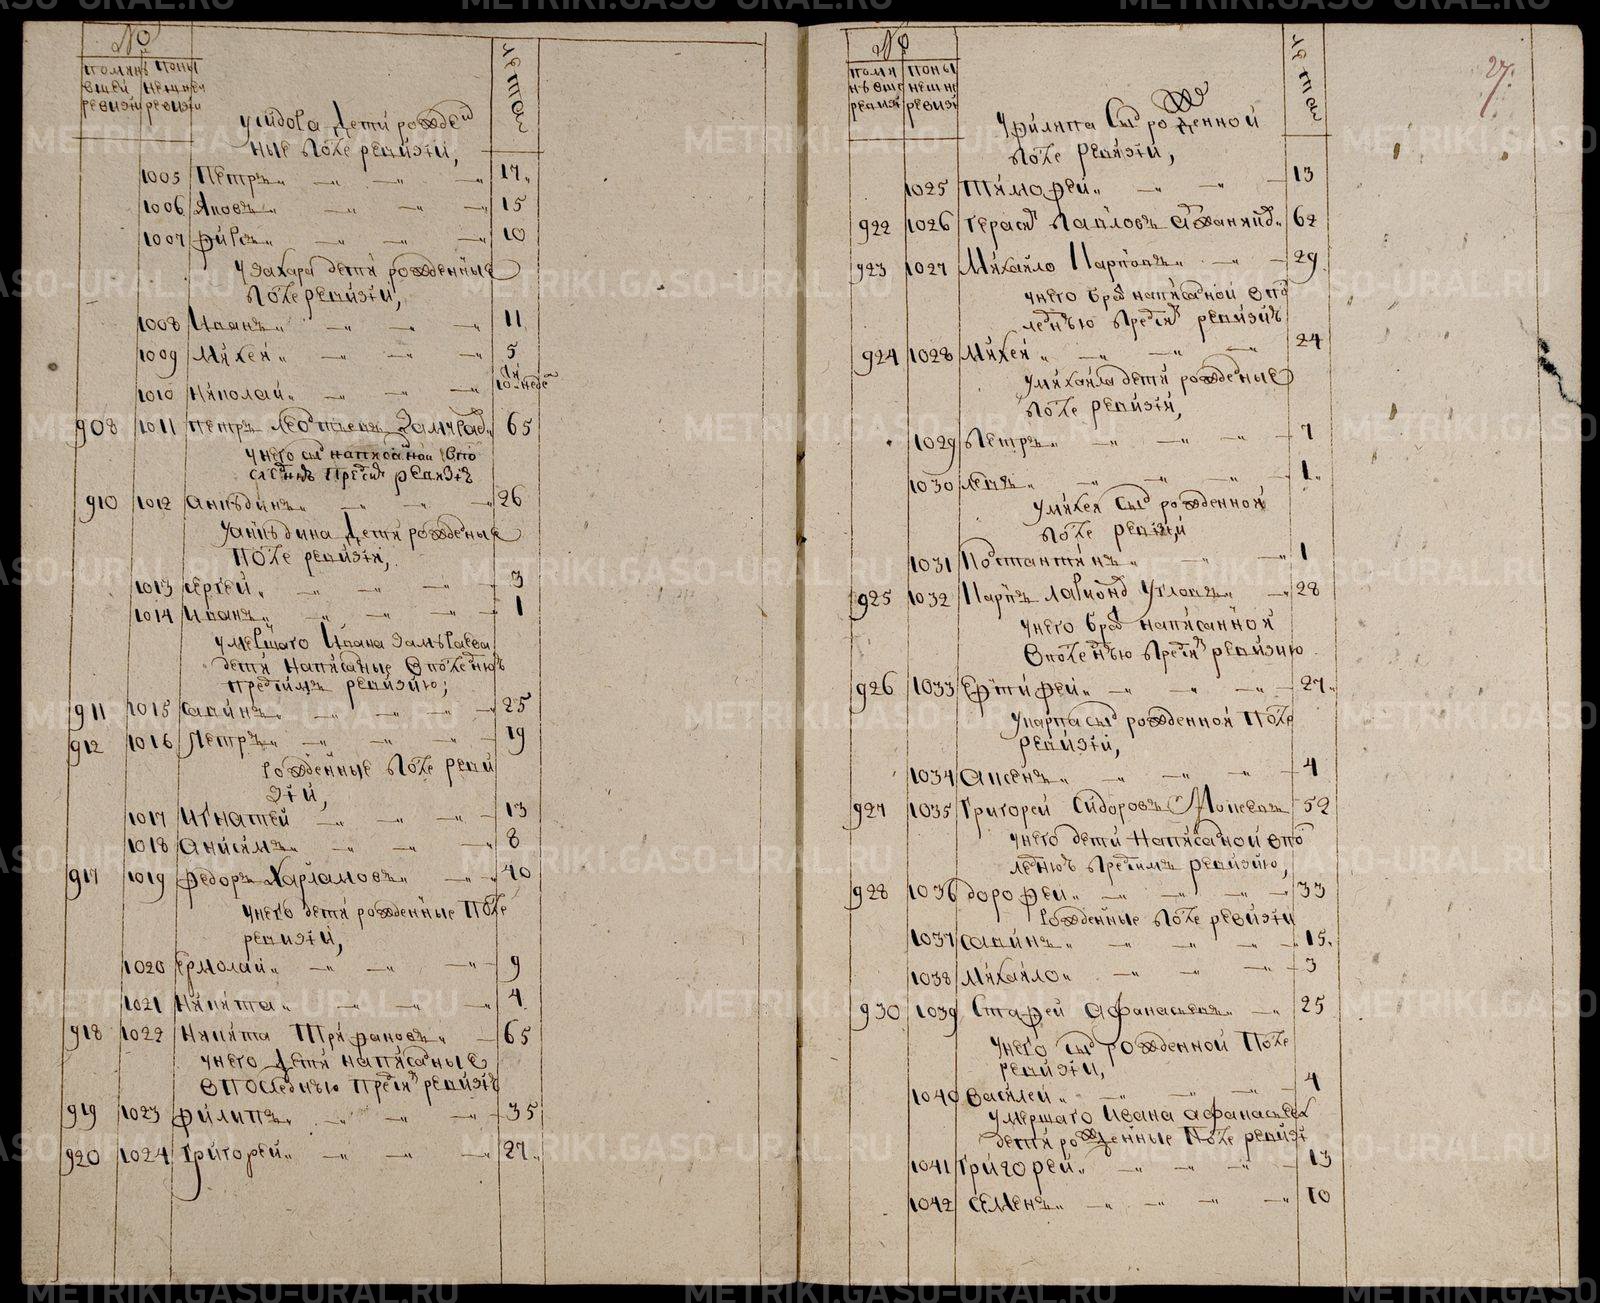 №
помян вшей ревизи
поны нешней ревизи
лѣта
у Сидора дети рожден
ные после ревизіи,
1005 Петръ 17
1006 Яковъ 15
1007 Фирсъ 10
у Захара дети рожденные
после ревизіи,
1008 Иванъ 11
1009 Михей 5
1010 Николай 10 неде
908 1011 Петръ Леонтьевъ Замураев 65
у него сын написаной впо
следнюю пред сим ревизіѣ
910 1012 Аникдинъ 26
у Аникдина дети рожденые
после ревизіи,
1013 Сергей 3
1014 Иванъ 1
умершаго Ивана Замураева
дети написаные в последнюю
предсимъ ревизію;
911 1015 Савинъ 25
912 1016 Петръ 19
рожденные после реви
зіи,
1017 Игнатей 13
1018 Анисимъ 8
917 1019 Федоръ Харламовъ 40
у него дети рожденные после
ревизіи,
1020 Ермолай 9
1021 Никита 4
918 1022 Никита Трифановъ 65
у него дети написаные
в последнюю пред сим ревизіѣ
919 1023 Филипъ 35
920 1024 Григорей 27
27.
№
помя нѣвше ревизи
поны нешне ревизі
лѣта
у Филипа сын рожденной
после ревизіи,
1025 Тимофей 13
922 1026 Герасим Павловъ 62
923 1027 Михайло Карповъ 29
у него брат написаной в по
следнюю пред сим ревизіѣ
924 1028 Михей 24
у Михаила дети рожденые
после ревизіи,
1029 Петръ 7
1030 Левъ 1
у Михея сын рожденной
после ревизіи
1031 Костантинъ 1
925 1032 Карпъ Ларионов Угловъ 28
у него брат написанной
в последнюю пред сим ревизию
926 1033 Ерофей 27
у Карпа сын рожденной после
ревизіи,
1034 Аксенъ 4
927 1035 Григорей Сидоровъ Мокеевъ 52
у него дети написаной в по
следнюю пред симъ ревизію,
928 1036 Дорофей 33
рожденные после ревизіи
1037 Савинъ 15
1038 Михайло 3
930 1039 Стафей Афанасьевъ 25
у него сын рожденной после
ревизіи,
1040 Василей 4
умершаго Ивана Афанасьева
дети рожденные после ревизі
1041 Григорей 13
1042 Семенъ 10
METRIKI.GASO-URAL.RU